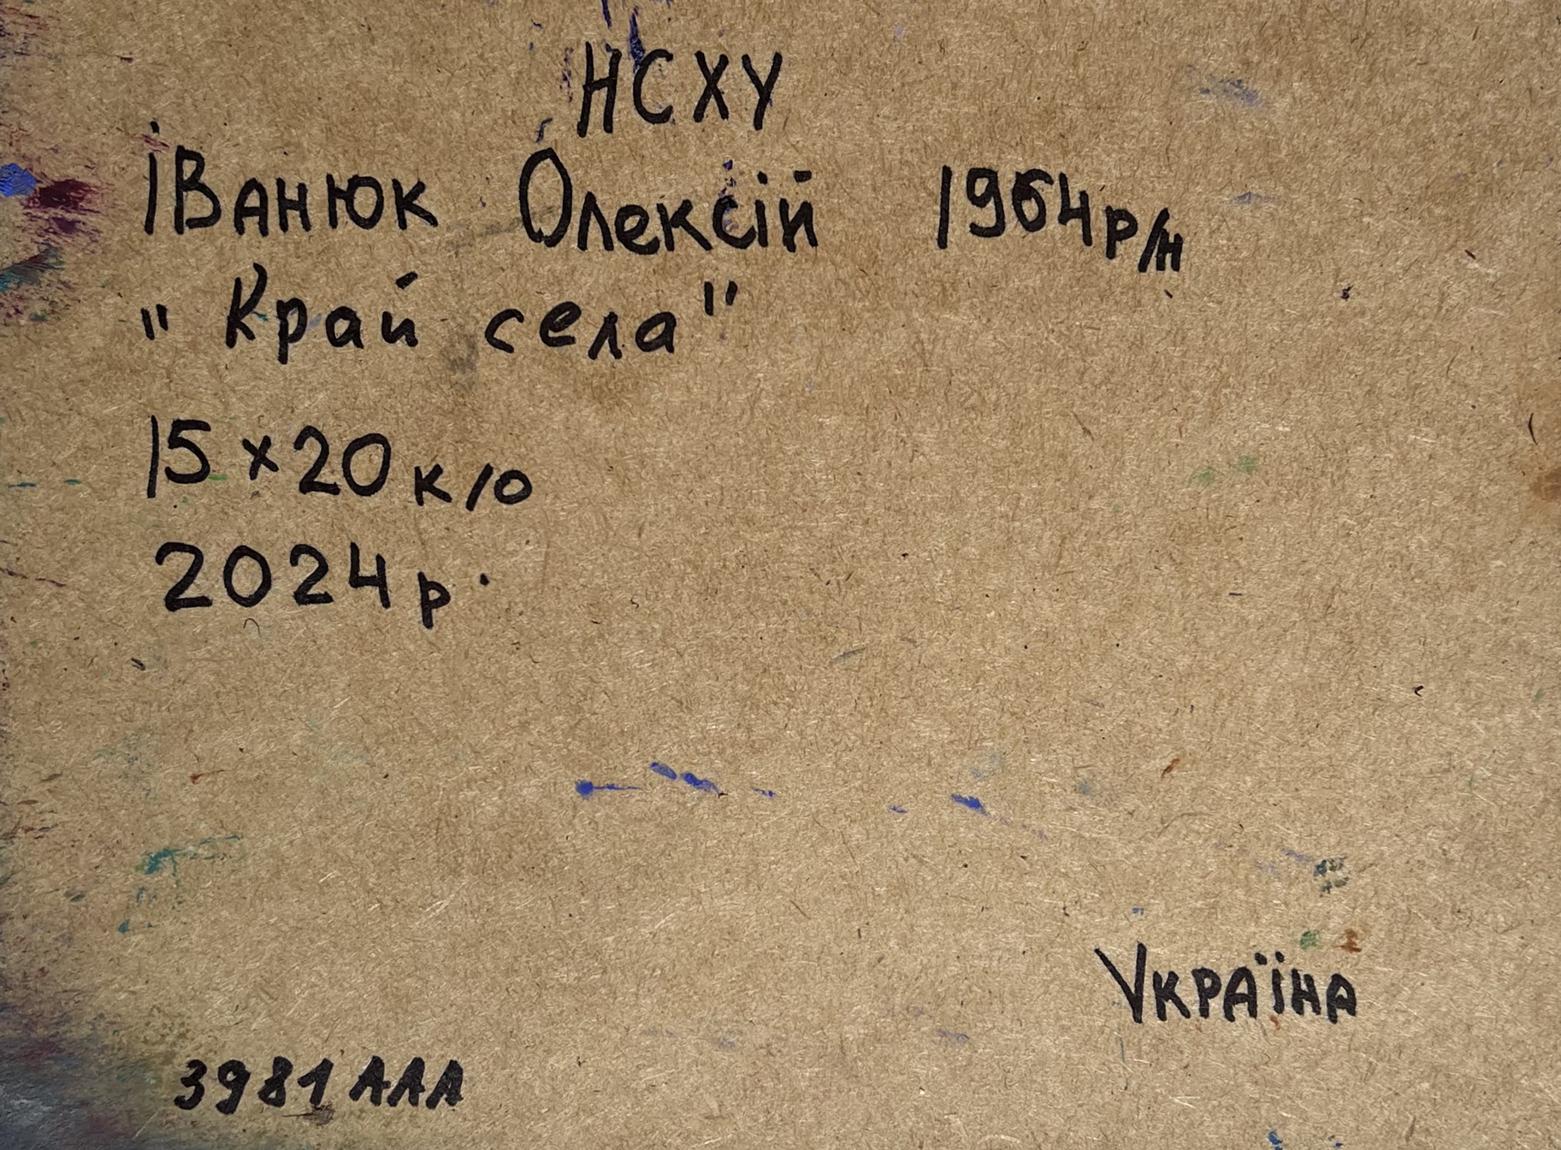 НСХУ
Іванюк Олексій 1964р/н
"Край села"
15×20 к/о
2024р.
Україна
3981ААА